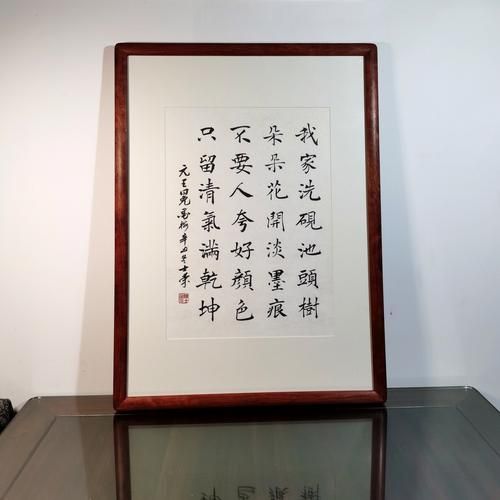 我家洗硯池頭樹
朵朵花開淡墨痕
不要人夸好顏色
只留清氣滿乾坤
元王冕墨梅辛丑冬士